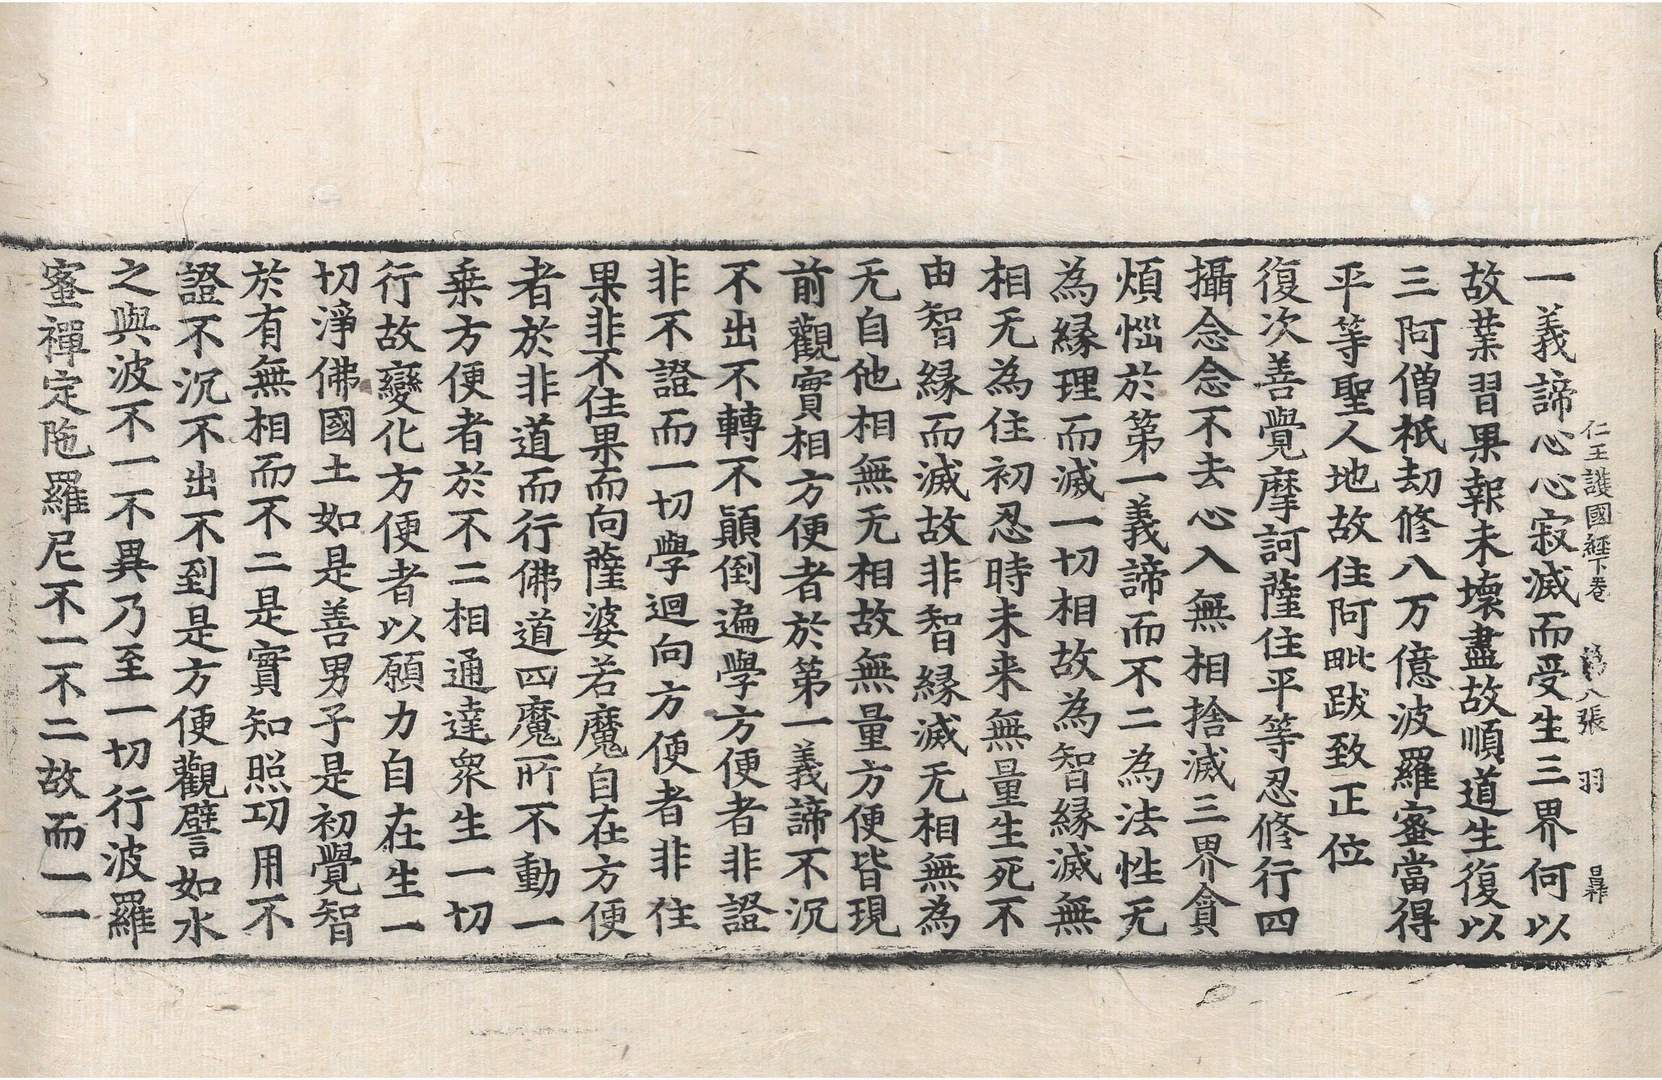 仁王護國經下卷 第八張 羽
一義諦心心寂滅而受生三界何以
故業習果報未壞盡故順道生復以
三阿僧祇劫修八万億波羅蜜當得
平等聖人地故住阿毗跋致正位
復次善覺摩訶薩住平等忍修行四
攝念念不去心入無相捨滅三界貪
煩惱於第一義諦而不二為法性无
為縁理而滅一切相故為智縁滅無
相无為住初忍時未来無量生死不
由智縁而滅故非智縁滅无相無為
无自他相無无相故無量方便皆現
前觀實相方便者於第一義諦不沉
不出不轉不顛倒遍學方便者非證
非不證而一切學迴向方便者非住
果非不住果而向薩婆若魔自在方便
者於非道而行佛道四魔所不動一
乗方便者於不二相通達衆生一切
行故變化方便者以願力自在生一
切淨佛國土如是善男子是初覺智
於有無相而不二是實知照㓛用不
證不沉不出不到是方便觀譬如水
之與波不一不異乃至一切行波羅
蜜禪定陁羅尼不一不二故而一一